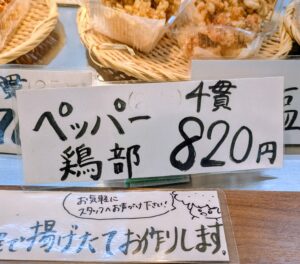 ペッパー 4貫
鶏部 820円
お気軽に
スタッフへお声がけ下さい!
で揚げたてお作りします.